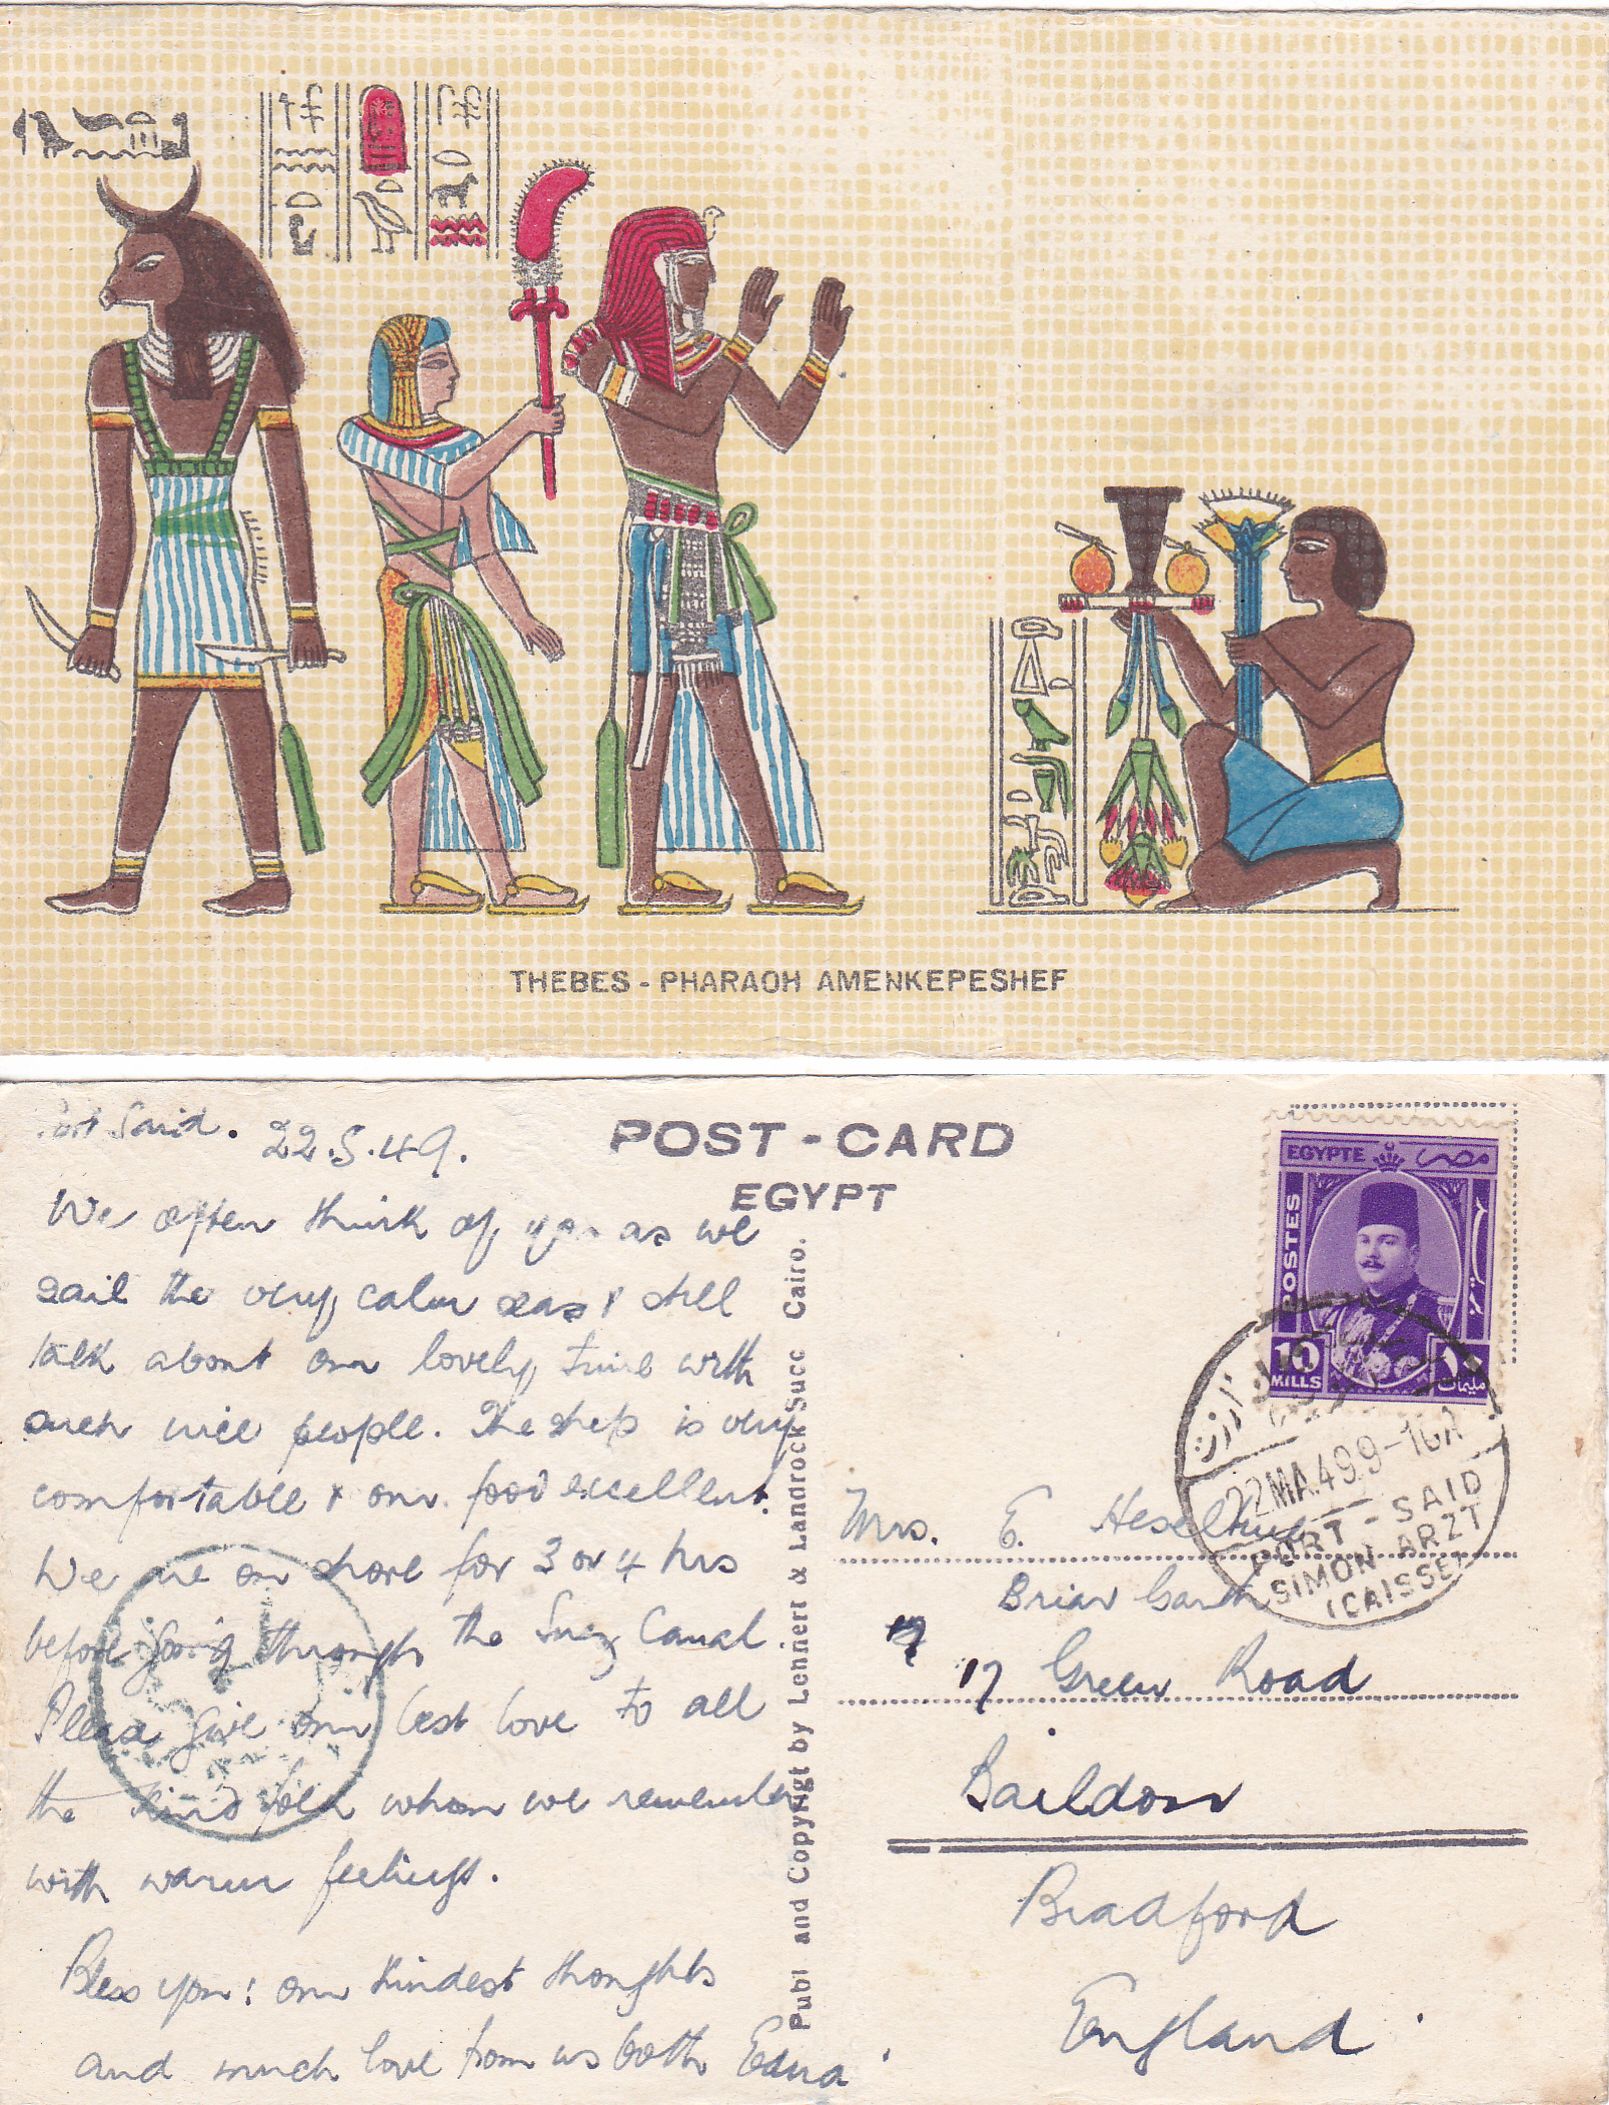 THEBES - PHARAOH AMENKEPESHEF
Port Said. 22.5.49.
POST - CARD
EGYPT
We often think of you as we
sail the very calm seas & still
talk about our lovely time with
such nice people. The ship is very
comfortable & our food excellent.
We are on shore for 3 or 4 hrs
before going through the Suez Canal
Please give our best love to all
the kind folk whom we remember
with warm feelings.
Bless you! our kindest thoughts
and much love from us both Edna
Publ and Copyrigt by Lennert & Landrock Succ Cairo.
EGYPTE مصر
POSTES
10 MILLS
١٠ مليمات
22 MA. 49. 9-10A
PORT-SAID
SIMON ARZT
(CAISSE)
Mrs. E. Heseltine
Briar Garth
17 Green Road
Baildon
Bradford
England